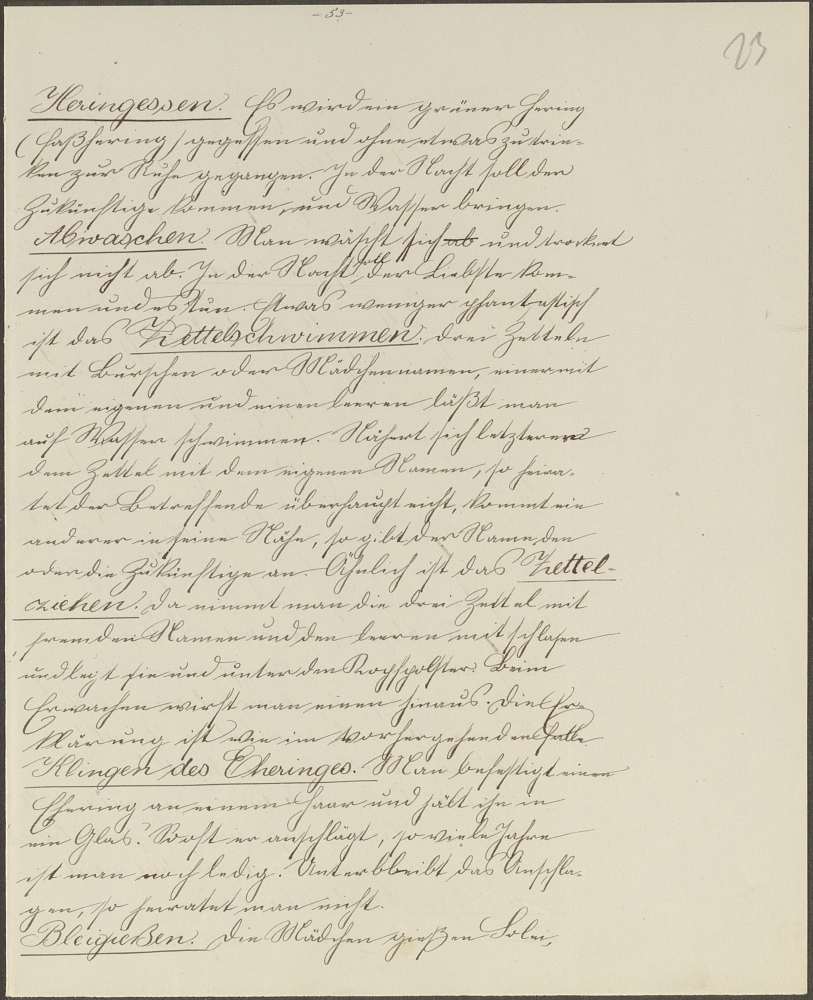 - 53 -
23
Heringessen. Es wird ein grüner Hering
(Faßhering) gegessen und ohne etwas zu trin-
ken zur Ruhe gegangen. In der Nacht soll der
Zukünftige kommen, und Wasser bringen.
Abwaschen. Man wäscht sich ab und trocknet
sich nicht ab. In der Nacht soll der Liebste kom-
men und es tun. Etwas weniger phantastisch
ist das Zettelschwimmen. Drei Zetteln
mit Burschen oder Mädchennamen, einer mit
dem eigenen und einen leeren läßt man
auf Wasser schwimmen. Nähert sich letzterer
dem Zettel mit dem eigenen Namen, so heira-
tet der Betreffende überhaupt nicht, kommt ein
anderer in seine Nähe, so gibt der Name den
oder die Zukünftige an. Ähnlich ist das Zettel-
ziehen. Da nimmt man die drei Zettel mit
fremden Namen und den leeren mit schlafen
und legt sie und unter den Kopfpolster. Beim
Erwachen wirft man einen hinaus. Die Er-
klärung ist wie im vorhergehenden Falle
Klingen des Eheringes. Man befestigt einen
Ehering an einem Haar und hält ihn in
ein Glas. Sooft er anschlägt, so viele Jahre
ist man noch ledig. Unterbbleibt das Anschla-
gen, so heiratet man nicht.
Bleigießen. Die Mädchen gießen Blei,